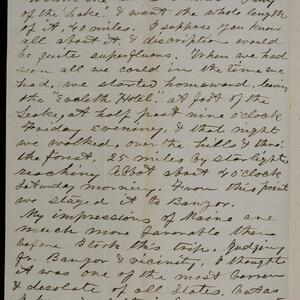 of the Lake. I went the whole length
of it, 40 miles. I suppose you know
all about it, & discription would
be quite superfluous. When we had
seen all we could in the time we
had, we started homeward, leaving
the Hotel at foot of the
Lake, at half past nine o'clock
Friday Evening, & that night
we walked, over the hills & thro'
the forest, 25 miles by starlight,
reaching Abbot about 4 o'clock
Saturday morning. From this point
we staged it to Bangor.
My impressions of Maine are
much more favorable than
before I took this trip. Judging
fr. Bangor & vicinity, I thought
it was one of the most barren
& desolate of all States, but as